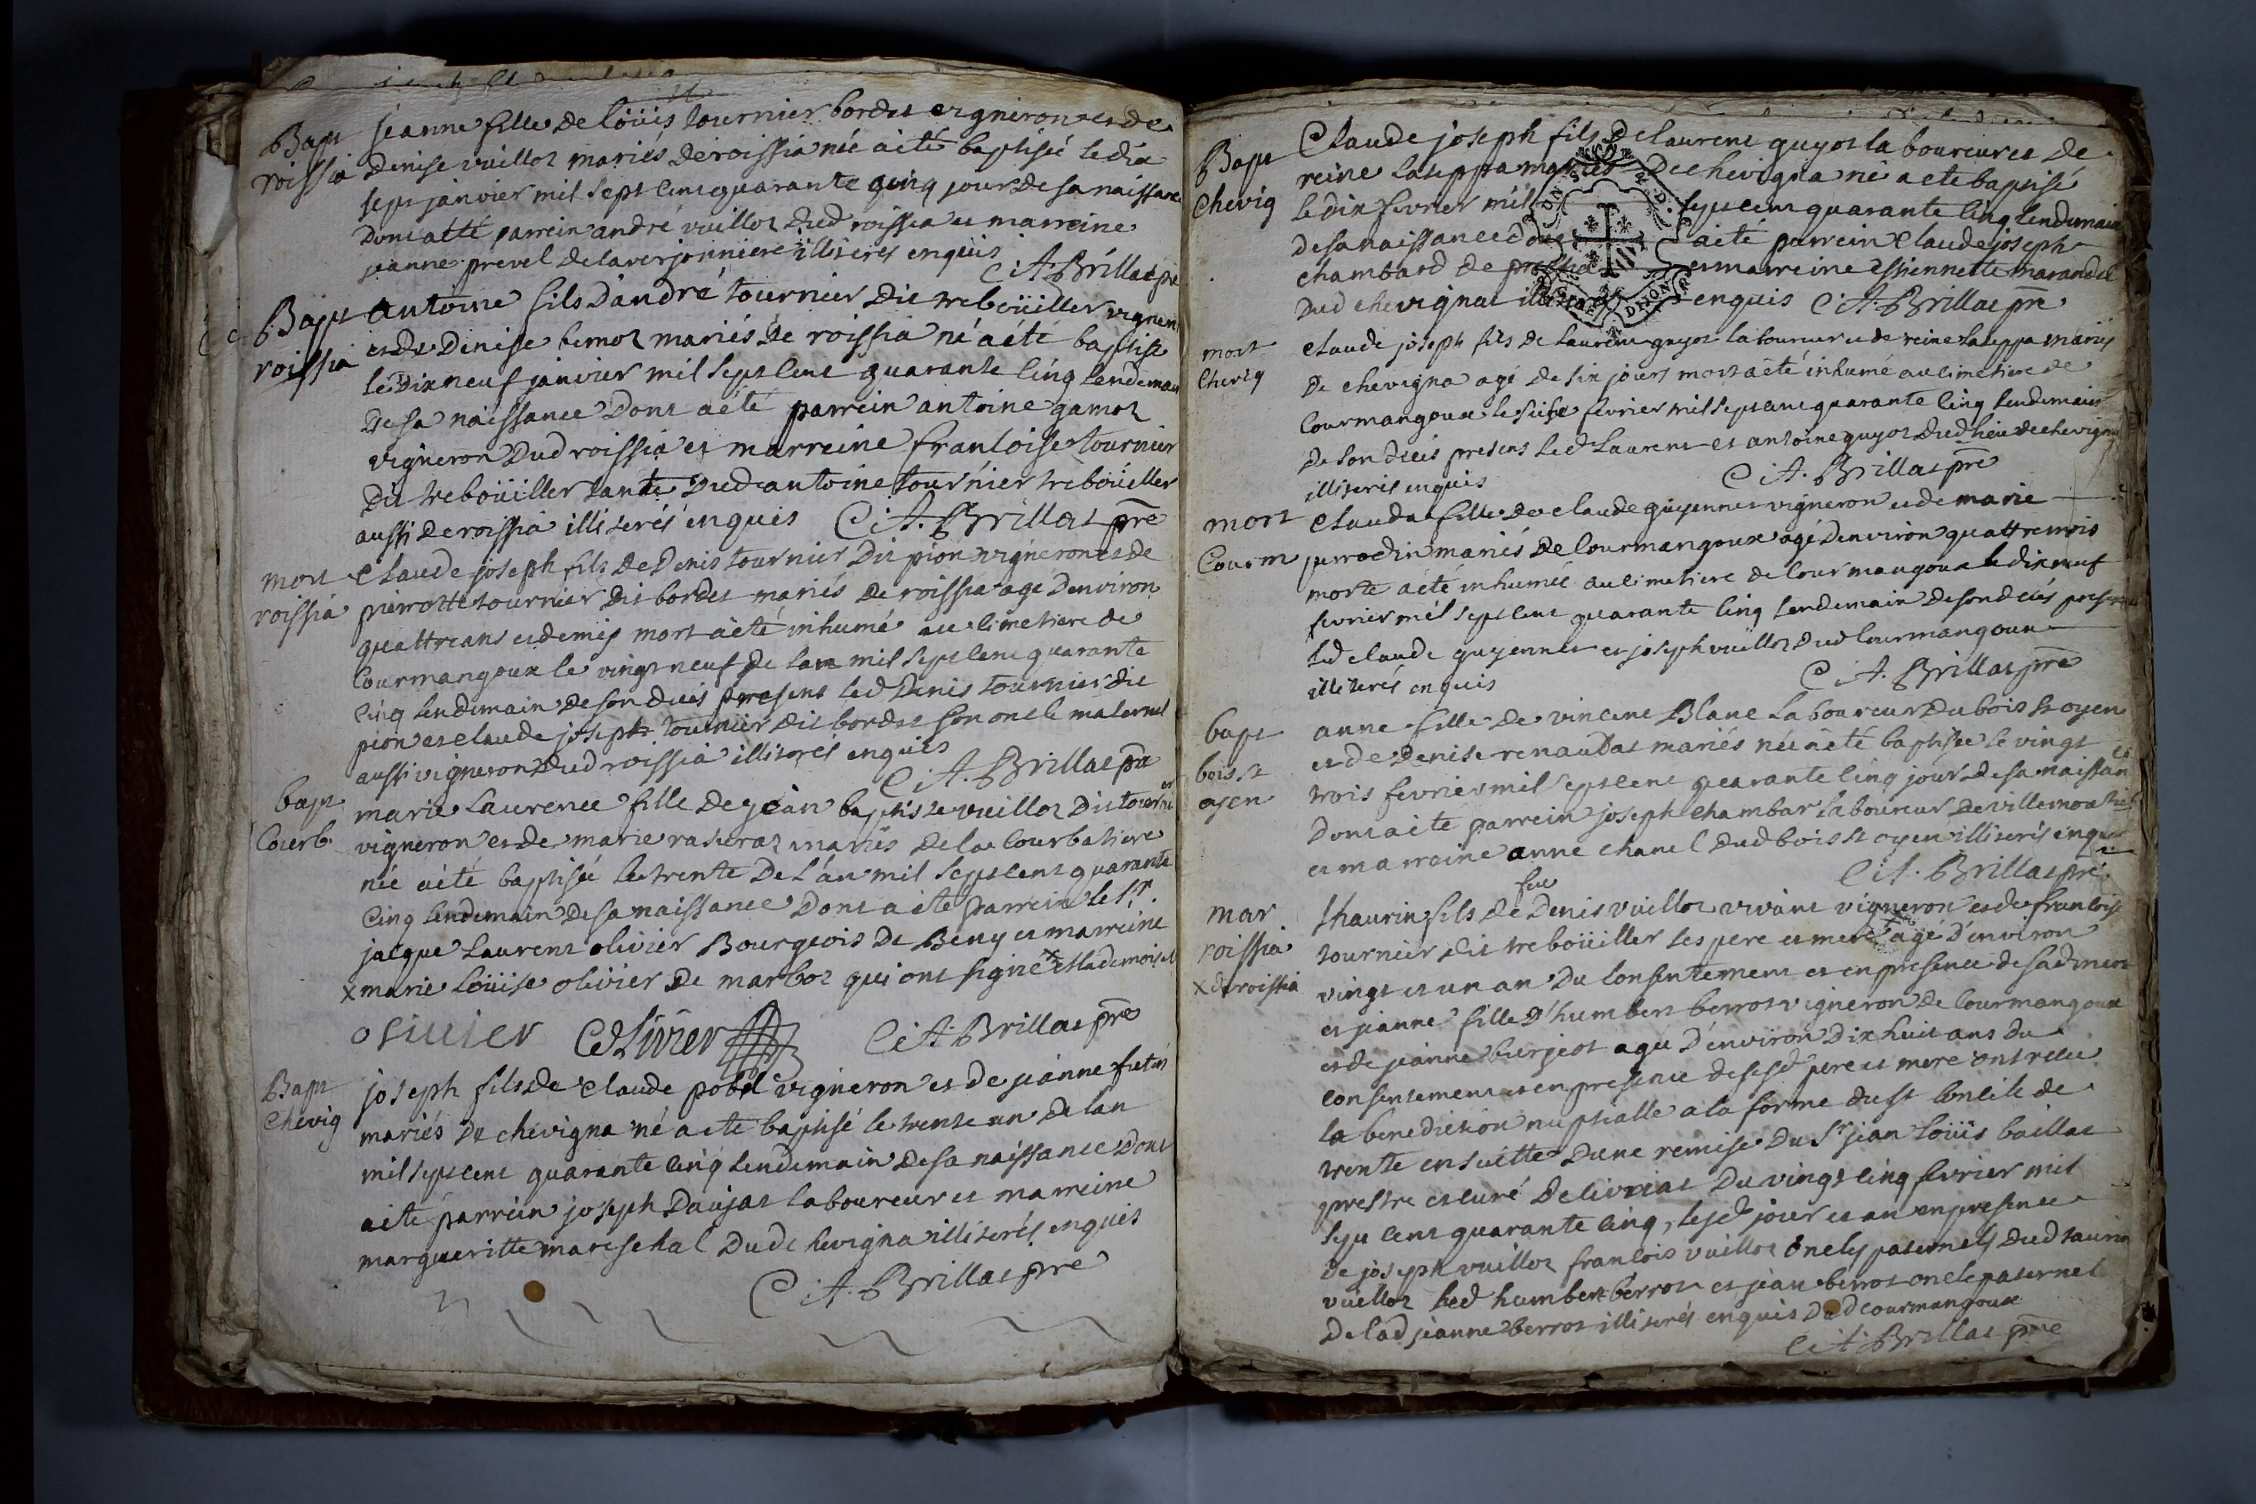 Bapt
roissia
jeanne fille de loüis tournier bordet vigneron et de
denise vuillot mariés de roissia née a été baptisée le dix
sept janvier mil sept cent quarante cinq jour de sa naissance
dont a été parrein andré vuillot dud roissia et marreine
jeanne prevel de la verjonniere illiterés enquis
C: A: Brillat pre
Bapt
roissia
antoine fils d'andré tournier dit treboüiller vigneron
et de denise bernot mariés de roissia né a été baptisé
le dix neuf janvier mil sept cent quarante cinq lendemain
de sa naissance dont a été parrein antoine gamot
vigneron dud roissia et marreine francoise tournier
dit treboüiller tante dud antoine tournier treboüiller
aussi de roissia illiterés enquis C: A: Brillat pre
mort
roissia
claude joseph fils de denis tournier dit pion vigneron et de
pierrotte tournier dit bordet mariés de roissia agé d'environ
quattre ans et demis mort a été inhumé au cimetiere de
Courmangoux le vingt neuf de l'an mil sept cent quarante
cinq lendemain de son decés present led denis tournier dit
pion et claude joseph tournier dit bordet son oncle maternel
aussi vigneron dud roissia illiterés enquis
C: A: Brillat pre
bapt
Courb
marie laurence fille de jean baptiste vuillot dit tournier
vigneron et de marie raserat mariés de la Courbatiere
née a été baptisée le trente de l'an mil sept cent quarante
cinq lendemain de sa naissance dont a été parrein le Sr.
jacque laurent olivier Bourgeois de Beny et marreine
x marie loüise olivier de marboz qui ont signé x et lademoiselle
olivier COlivier C: A: Brillat pre
Bapt
Chevig
joseph fils de claude pobel vigneron et de jeanne futin
mariés de chevigna né a été baptisé le trente un de lan
mil sept cent quarante cinq lendemain de sa naissance dont
a été parrein joseph daujat laboureur et marreine
margueritte mareschal dud chevigna illiterés enquis
C: A: Brillat pre
Bapt
Chevig
Claude joseph fils de laurent guyot laboureur et de
reine laseppa mariés de chevigna né a été baptisé
le dix fevrier mil sept cent quarante cinq lendemain
de sa naissance dont a été parrein claude joseph
chambard de et marreine estiennette marandel
dud chevignat illiterés enquis C: A: Brillat pre
DIJON
mort
chevig
claude joseph fils de laurent guyot laboureur et de reine laseppa mariés
de chevigna agé de six jours mort a été inhumé au cimetiere de
Courmangoux le seize fevrier mil sept cent quarante cinq lendemain
de son decés presens led laurent et antoine guyot dud lieu de chevigna
illiterés enquis C: A: Brillat pre
mort
Courm
Clauda fille de claude guyennet vigneron et de marie
perrodin mariés de Courmangoux agé d'environ quattre mois
morte a été inhumée au cimetiere de Courmangoux le dix neuf
fevrier mil sept cent quarante cinq lendemain de son decés presens
led claude guyennet et joseph vuillot dud Courmangoux
illiterés enquis C: A: Brillat pre
bapt
bois st
oyen
anne fille de vincent Blanc laboureur du bois st oyen
et de denise renaudat mariés née a été baptisée le vingt et
trois fevrier mil sept cent quarante cinq jour de sa naissance
dont a été parrein joseph chambar laboureur de villemoutier
et marreine anne chanel dud bois st oyen illiterés enquis
C: A: Brillat pre
mar
roissia
x de roissia
thaurin fils de feu denis vuillot vivant vigneron et de francoise
tournier dit treboüiller ses pere et mere x agé d'environ
vingt et un an du consentement et en presence de sad mere
et jeanne fille d'humbert berrot vigneron de Courmangoux
et de jeanne burjeot agée d'environ dix huit ans du
consentement et en presence de sesd pere et mere ont recu
la benediction nuptialle a la forme du st concile de
trente ensuitte d'une remise du Sr jean loüis baillat
prestre et curé de civriat du vingt cinq fevrier mil
sept cent quarante cinq, lesd jour et an en presence
de joseph vuillot francois vuillot oncles paternels dud taurin
vuillot led humbert berrot et jean berrot oncle paternel
de lad jeanne berrot illiterés enquis dud courmangoux
C: A: Brillat pre